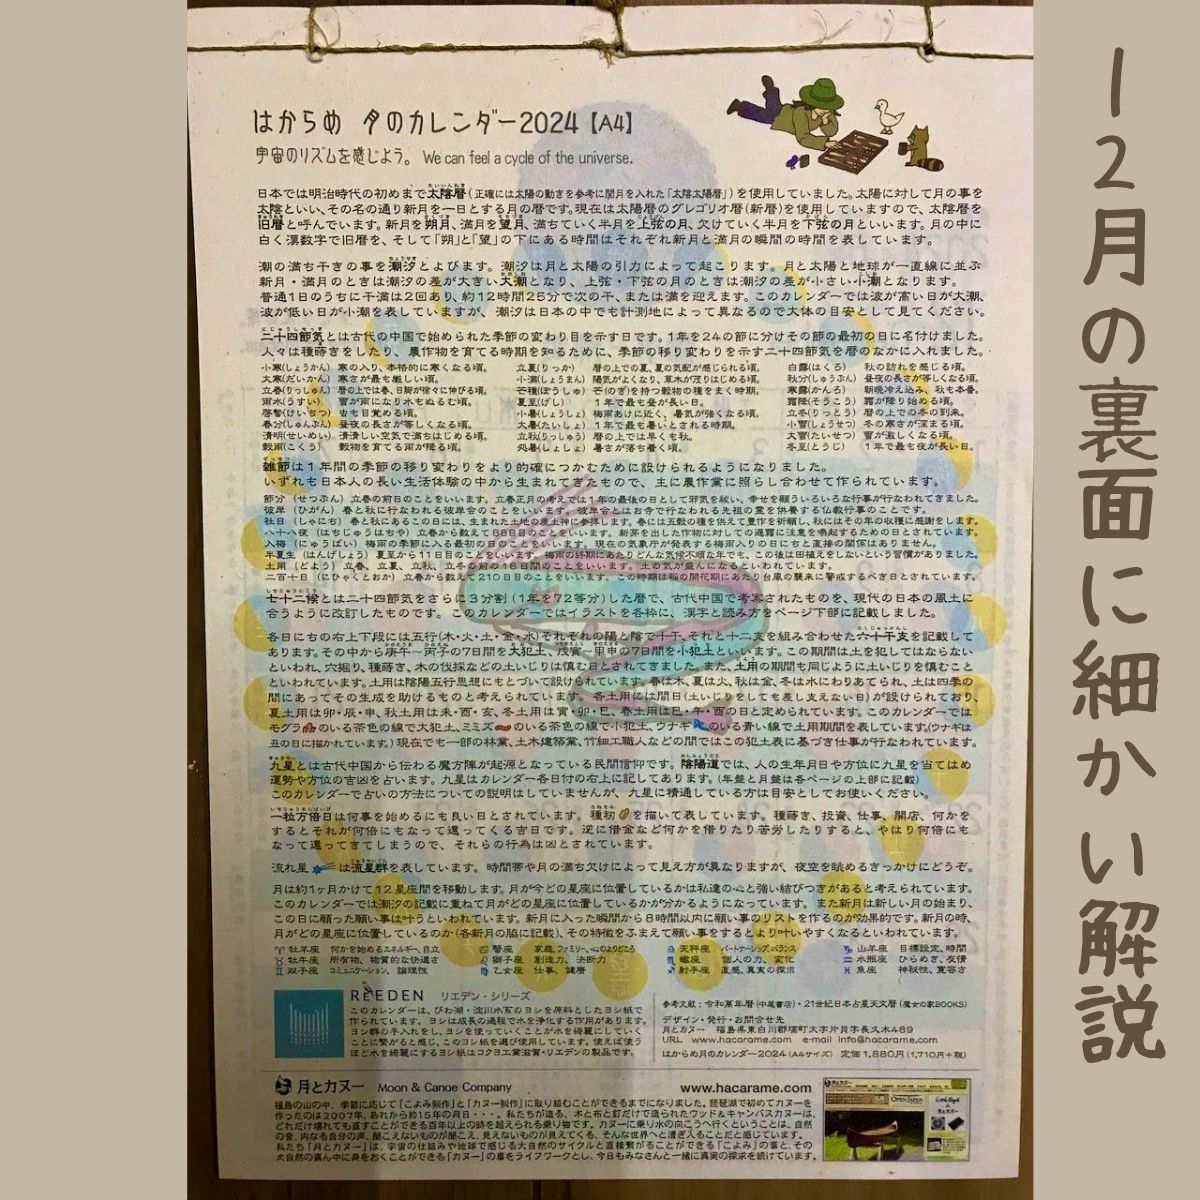 はからめ 月のカレンダー2024【A4】
宇宙のリズムを感じよう。 We can feel a cycle of the universe.
日本では明治時代の初めまで太陰暦(正確には太陽の動きを参考に閏月を入れた「太陰太陽暦」)を使用していました。太陽に対して月の事を
太陰といい、その名の通り新月を一日とする月の暦です。現在は太陽暦のグレゴリオ暦(新暦)を使用していますので、太陰暦を
旧暦と呼んでいます。新月を朔月、満月を望月、満ちていく半月を上弦の月、欠けていく半月を下弦の月といいます。月の中に
白く漢数字で旧暦を、そして「朔」と「望」の下にある時間はそれぞれ新月と満月の瞬間の時間を表しています。
潮の満ち干きの事を潮汐とよびます。潮汐は月と太陽の引力によって起こります。月と太陽と地球が一直線に並ぶ
新月・満月のときは潮汐の差が大きい大潮となり、上弦・下弦の月のときは潮汐の差が小さい小潮となります。
普通1日のうちに干満は2回あり、約12時間25分で次の干、または満を迎えます。このカレンダーでは波が高い日が大潮、
波が低い日が小潮を表していますが、潮汐は日本の中でも計測地によって異なるので大体の目安として見てください。
二十四節気とは古代の中国で始められた季節の変わり目を示す日です。1年を24の節に分けその節の最初の日に名付けました。
人々は種蒔きをしたり、農作物を育てる時期を知るために、季節の移り変わりを示す二十四節気を暦のなかに入れました。
小寒(しょうかん) 寒の入り、本格的に寒くなる頃。
大寒(だいかん) 寒さが最も厳しい頃。
立春(りっしゅん) 暦の上では春、日脚が徐々に伸びる頃。
雨水(うすい) 雪が雨になり水もぬるむ頃。
啓蟄(けいちつ) 虫も目覚める頃。
春分(しゅんぶん) 昼夜の長さが等しくなる頃。
清明(せいめい) 清清しい空気で満ちはじめる頃。
穀雨(こくう) 穀物を育てる雨が降る頃。
立夏(りっか) 暦の上での夏、夏の気配が感じられる頃。
小満(しょうまん) 陽気がよくなり、草木が茂りはじめる頃。
芒種(ぼうしゅ) 芒(のぎ)を持つ穀物の種をまく時期。
夏至(げし) 1年で最も昼が長い日。
小暑(しょうしょ) 梅雨あけに近く、暑気が強くなる頃。
大暑(たいしょ) 1年で最も暑いとされる時期。
立秋(りっしゅう) 暦の上では早くも秋。
処暑(しょしょ) 暑さが落ち着く頃。
白露(はくろ) 秋の訪れを感じる頃。
秋分(しゅうぶん) 昼夜の長さが等しくなる頃。
寒露(かんろ) 朝晩冷え込み、秋も本番。
霜降(そうこう) 霜が降り始める頃。
立冬(りっとう) 暦の上での冬の到来。
小雪(しょうせつ) 冬の寒さが深まる頃。
大雪(たいせつ) 雪が激しくなる頃。
冬至(とうじ) 1年で最も夜が長い日。
雑節は1年間の季節の移り変わりをより的確につかむために設けられるようになりました。
いずれも日本人の長い生活体験の中から生まれてきたもので、主に農作業に照らし合わせて作られています。
節分 (せつぶん) 立春の前日のことをいいます。立春正月の考えでは1年の最後の日として邪気を祓い、幸せを願ういろいろな行事が行なわれてきました。
彼岸 (ひがん) 春と秋に行なわれる彼岸会のことをいいます。彼岸会とはお寺で行なわれる先祖の霊を供養する仏教行事のことです。
社日 (しゃにち) 春と秋にあるこの日には、生まれた土地の産土神に参拝します。春には五穀の種を供えて豊作を祈願し、秋にはその年の収穫に感謝をします。
八十八夜 (はちじゅうはちや) 立春から数えて88日目のことをいいます。新芽を出した作物に対しての遅霜に注意を喚起するための日とされています。
入梅 (にゅうばい) 梅雨の季節に入る最初の日のことをいいます。現在の気象庁が発表する梅雨入りの日にちと直接の関係はありません。
半夏生 (はんげしょう) 夏至から11日目のことをいいます。梅雨の終期にあたりどんな気候不順な年でも、この後は田植えをしないという習慣がありました。
土用 (どよう) 立春、立夏、立秋、立冬の前の18日間のことをいいます。土の気が盛んになるといわれています。
二百十日 (にひゃくとおか) 立春から数えて210日目のことをいいます。この時期は稲の開花期にあたり台風の襲来に警戒するべき日とされています。
七十二候とは二十四節気をさらに3分割(1年を72等分)した暦で、古代中国で考案されたものを、現代の日本の風土に
合うように改訂したものです。このカレンダーではイラストを各枠に、漢字と読み方をページ下部に記載しました。
各日にちの右上下段には五行(木・火・土・金・水)それぞれの陽と陰で十干、それと十二支を組み合わせた六十干支を記載して
あります。その中から庚午～丙子の7日間を大犯土、戊寅～甲申の7日間を小犯土といいます。この期間は土を犯してはならない
といわれ、穴掘り、種蒔き、木の伐採などの土いじりは慎む日とされてきました。また、土用の期間も同じように土いじりを慎むこと
といわれています。土用は陰陽五行思想にもとづいて設けられています。春は木、夏は火、秋は金、冬は水にわりあてられ、土は四季の
間にあってその生成を助けるものと考えられています。各土用には間日(土いじりをしても差し支えない日)が設けられており、
夏土用は卯・辰・申、秋土用は未・酉・亥、冬土用は寅・卯・巳、春土用は巳・午・酉の日と定められています。このカレンダーでは
モグラのいる茶色の線で大犯土、ミミズのいる茶色の線で小犯土、ウナギのいる青い線で土用期間を表しています。(ウナギは
丑の日に描かれています。)現在でも一部の林業、土木建築業、竹細工職人などの間ではこの犯土表に基づき仕事が行なわれています。
九星とは古代中国から伝わる魔方陣が起源となっている民間信仰です。陰陽道では、人の生年月日や方位に九星を当てはめ
運勢や方位の吉凶を占います。九星はカレンダー各日付の右上に記してあります。(年盤と月盤は各ページの上部に記載)
このカレンダーで占いの方法についての説明はしていませんが、九星に精通している方は目安としてお使いください。
一粒万倍日は何事を始めるにも良い日とされています。種籾を描いて表しています。種蒔き、投資、仕事、開店、何かを
するとそれが何倍にもなって還ってくる吉日です。逆に借金など何かを借りたり苦労したりすると、やはり何倍にも
なって還ってきてしまうので、それらの行為は凶とされています。
流れ星は流星群を表しています。時間帯や月の満ち欠けによって見え方が異なりますが、夜空を眺めるきっかけにどうぞ。
月は約1ヶ月かけて12星座間を移動します。月が今どの星座に位置しているかは私達の心と強い結びつきがあると考えられています。
このカレンダーでは潮汐の記載に重ねて月がどの星座に位置しているかが分かるようになっています。また新月は新しい月の始まり、
この日に願った願い事は叶うといわれています。新月に入った瞬間から8時間以内に願い事のリストを作るのが効果的です。新月の時、
月がどの星座に位置しているのか(各新月の脇に記載)、その特徴をふまえて願い事をするとより叶いやすくなるといわれています。
♈ 牡羊座 何かを始めるエネルギー、自立
♉ 牡牛座 所有物、物質的な快適さ
♊ 双子座 コミュニケーション、論理性
♋ 蟹座 家庭、ファミリー、心のよりどころ
♌ 獅子座 創造力、決断力
♍ 乙女座 仕事、健康
♎ 天秤座 パートナーシップ、バランス
♏ 蠍座 個人の力、変化
♐ 射手座 直感、真実の探求
♑ 山羊座 目標設定、時間
♒ 水瓶座 ひらめき、友情
♓ 魚座 神秘性、寛容さ
REEDEN リエデン・シリーズ
このカレンダーは、びわ湖・淀川水系のヨシを原料としたヨシ紙で
作られています。ヨシは成長の過程で水を浄化する作用があります。
ヨシ群の手入れをし、ヨシを使っていくことが水を綺麗にしていく
ことに繋がると感じ、このヨシ紙を選び使用しています。使えば使う
ほど水を綺麗にするヨシ紙はコクヨ工業滋賀・リエデンの製品です。
参考文献：令和萬年暦(中尾書店)・21世紀日本占星天文暦(魔女の家BOOKS)
デザイン・発行・お問合せ先
月とカヌー 福島県東白川郡塙町大字片貝字長久木489
URL www.hacarame.com e-mail info@hacarame.com
はからめ月のカレンダー2024(A4サイズ) 定価1,880円(1,710円+税)
月とカヌー Moon & Canoe Company www.hacarame.com
福島の山の中、季節に応じて「こよみ制作」と「カヌー制作」に取り組むことができるまでになりました。琵琶湖で初めてカヌーを
作ったのは2007年、あれから約15年の月日・・・。私たちが造る、木と布と釘だけで造られたウッド&キャンバスカヌーは、
どれだけ壊れても直すことができる百年以上の時を超えられる乗り物です。カヌーに乗り水の向こうへ行くということは、自然
の音、内なる自分の声、聞こえないものが聞こえ、見えないものが見えてくる、そんな世界へと漕ぎ入ることだと感じています。
私たち「月とカヌー」は、宇宙の仕組みや地球で感じる大自然のサイクルと直接繋がることができる「こよみ」の事と、その
大自然の真ん中に身をおくことができる「カヌー」の事をライフワークとし、今日もみなさんと一緒に真実の探求を続けています。
OPEN JAPAN
12月の裏面に細かい解説